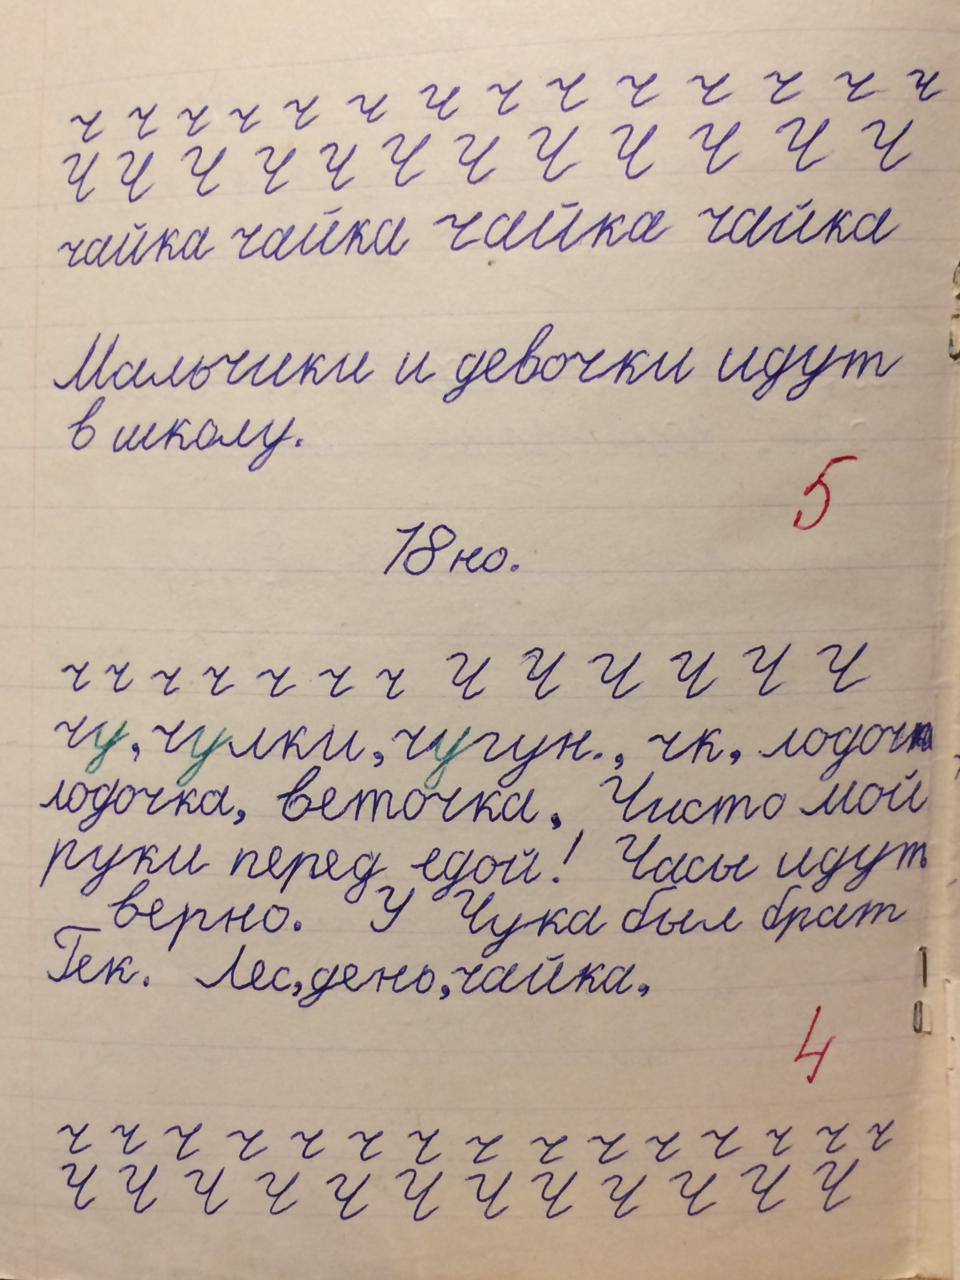 ч ч ч ч ч ч ч ч ч ч ч ч ч ч
Ч Ч Ч Ч Ч Ч Ч Ч Ч Ч Ч Ч
чайка чайка чайка чайка
Мальчики и девочки идут
в школу.
5
18 но.
ч ч ч ч ч ч ч Ч Ч Ч Ч Ч Ч
чу, чулки, чугун., чк, лодочк
лодочка, веточка, Чисто мой
руки перед едой! Часы идут
верно. У Чука был брат
Гек. Лес, день, чайка,
4
ч ч ч ч ч ч ч ч ч ч ч ч ч ч ч
Ч Ч Ч Ч Ч Ч Ч Ч Ч Ч Ч Ч